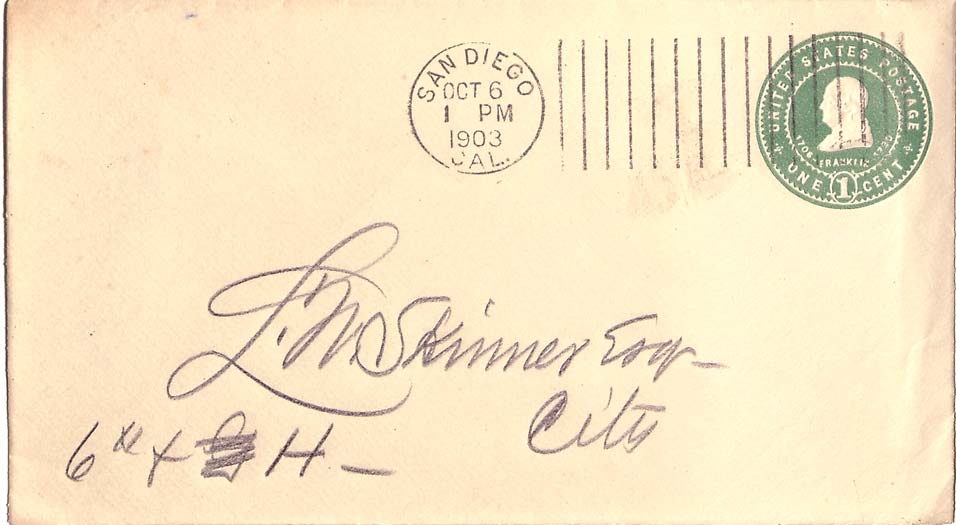 SAN DIEGO
OCT 6
1 PM
1903
CAL.
UNITED STATES POSTAGE
1706 FRANKLIN 1790
ONE 1 CENT
L. M. Skinner Esq
City
6th + H